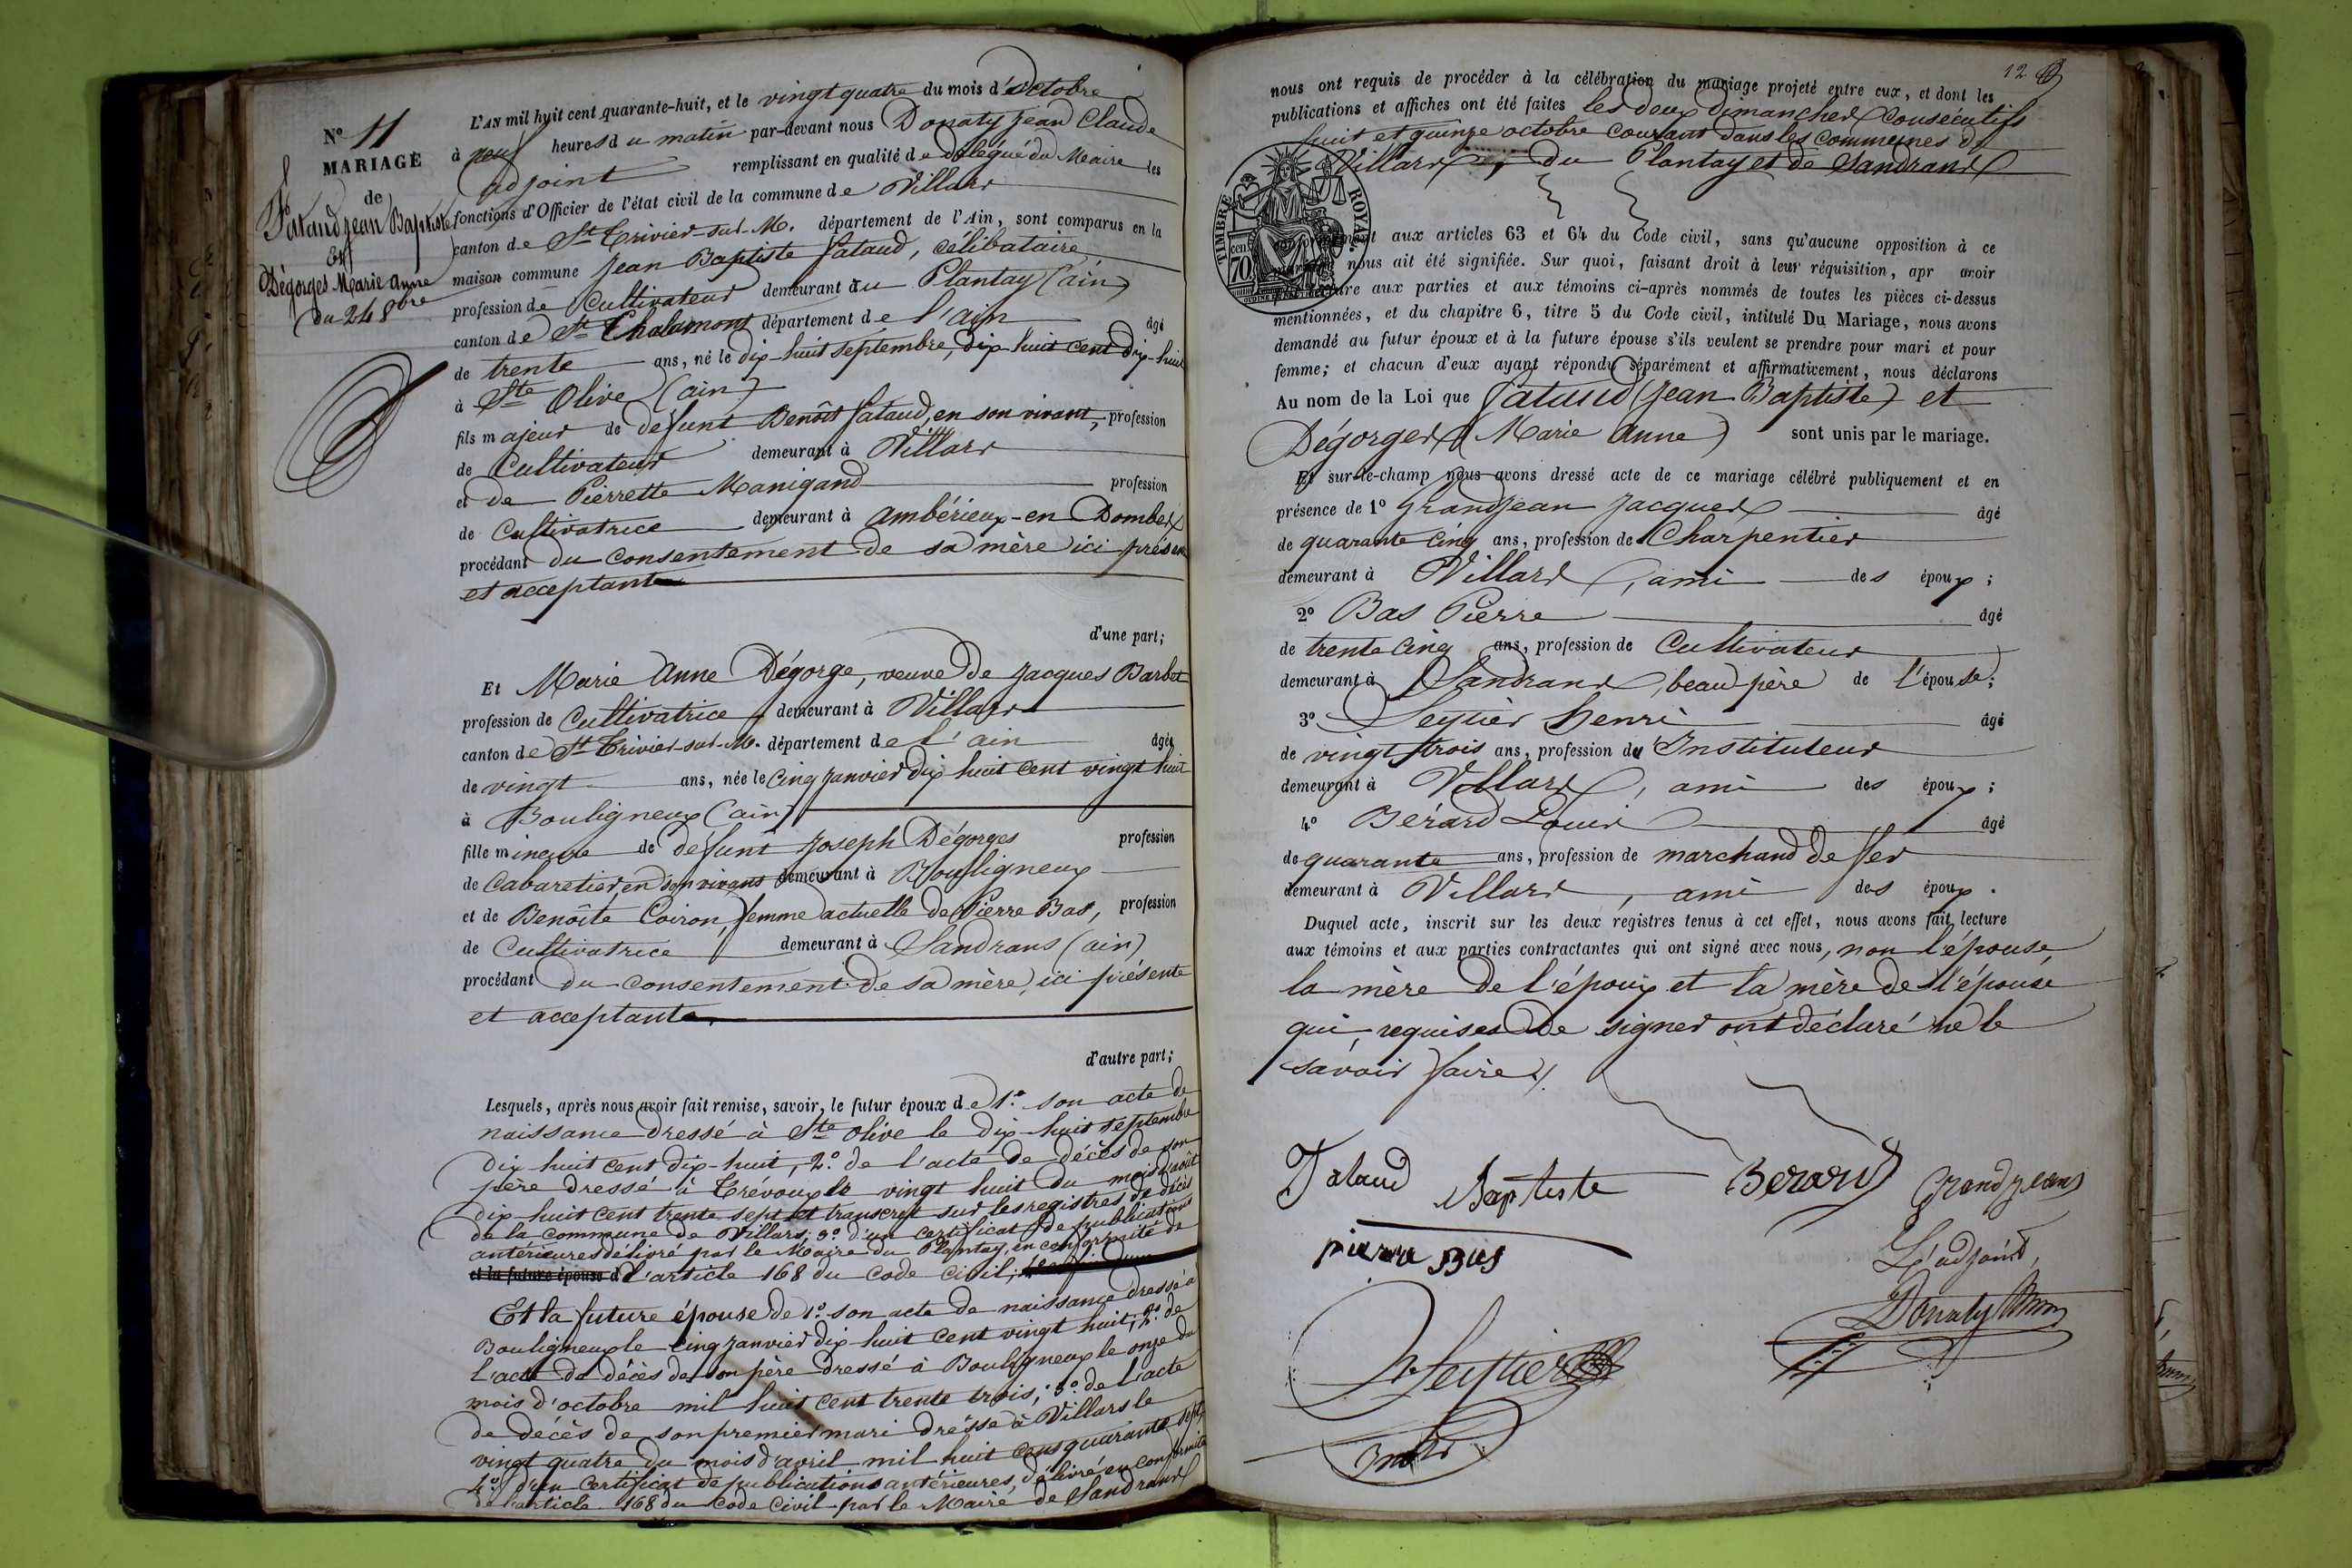 N° 11
MARIAGE
de
Fataud Jean Baptiste
Et
Dégorges Marie Anne
du 24 8bre
L'AN mil huit cent quarante-huit, et le vingt quatre du mois d'Octobre
à neuf heures du matin par-devant nous Donaty Jean Claude
adjoint remplissant en qualité de délégué du Maire les
fonctions d'Officier de l'état civil de la commune de Villars
canton de St Trivier-sur-M. département de l'Ain, sont comparus en la
maison commune Jean Baptiste Fataud, célibataire
profession de Cultivateur demeurant au Plantay (ain)
canton de Chalamont département de l'ain âgé
de trente ans, né le dix-huit septembre, dix huit cent dix-huit
à Ste Olive (ain)
fils majeur de défunt Benoît Fataud, en son vivant, profession
de Cultivateur demeurant à Villars
et de Pierrette Manigand profession
de Cultivatrice demeurant à Ambérieux-en Dombes
procédant du consentement de sa mère ici présente
et acceptante
d'une part;
Et Marie Anne Dégorge, veuve de Jacques Barbet
profession de Cultivatrice demeurant à Villars
canton de St Trivier-sur-M. département de l'ain âgée
de vingt ans, née le cinq janvier dix huit cent vingt huit
à Bouligneux (ain)
fille mineure de défunt Joseph Dégorges profession
de Cabaretier, en son vivant demeurant à Bouligneux
et de Benoîte Coiron, femme actuelle de Pierre Bas, profession
de Cultivatrice demeurant à Sandrans (ain)
procédant du consentement de sa mère, ici présente
et acceptante.
d'autre part;
Lesquels, après nous avoir fait remise, savoir, le futur époux de 1°. son acte de
naissance dressé à Ste Olive le dix-huit septembre
dix huit cent dix-huit, 2°. de l'acte de décès de son
père dressé à Trévoux le vingt huit du mois d'août
dix huit cent trente sept et transcrit sur les registres de décès
de la commune de Villars; 3°. d'un certificat de publications
antérieures délivré par le Maire du Plantay, en conformité de
et la future épouse d l'article 168 du code civil;
Et la future épouse de 1°. son acte de naissance dressé à
Bouligneux le cinq janvier dix huit cent vingt huit; 2°. de
l'acte de décès de son père dressé à Bouligneux le onze du
mois d'octobre mil huit cent trente trois; 3°. de l'acte
de décès de son premier mari dressé à Villars le
vingt quatre du mois d'avril mil huit cent quarante sept
4°. d'un certificat de publications antérieures, délivré en conformité
de l'article 168 du Code Civil par le Maire de Sandrans
12
nous ont requis de procéder à la célébration du mariage projeté entre eux, et dont les
publications et affiches ont été faites les deux dimanches consécutifs
huit et quinze octobre courant dans les communes de
Villars, du Plantay et de Sandrans
TIMBRE ROYAL.
70 cen
conformément aux articles 63 et 64 du Code civil, sans qu'aucune opposition à ce
mariage nous ait été signifiée. Sur quoi, faisant droit à leur réquisition, apr avoir
lecture aux parties et aux témoins ci-après nommés de toutes les pièces ci-dessus
mentionnées, et du chapitre 6, titre 5 du Code civil, intitulé Du Mariage, nous avons
demandé au futur époux et à la future épouse s'ils veulent se prendre pour mari et pour
femme; et chacun d'eux ayant répondu séparément et affirmativement, nous déclarons
Au nom de la Loi que Fataud (Jean Baptiste) et
Dégorges (Marie Anne) sont unis par le mariage.
Et sur-le-champ nous avons dressé acte de ce mariage célébré publiquement et en
présence de 1° Grandjean Jacques âgé
de quarante cinq ans, profession de Charpentier
demeurant à Villars, ami des époux;
2° Bas Pierre âgé
de trente cinq ans, profession de Cultivateur
demeurant à Sandrans, beau-père de l'épouse;
3° Seytier Henri âgé
de vingt trois ans, profession d' Instituteur
demeurant à Villars, ami des époux;
4° Bérard Louis âgé
de quarante ans, profession de marchand de fer
demeurant à Villars, ami des époux.
Duquel acte, inscrit sur les deux registres tenus à cet effet, nous avons fait lecture
aux témoins et aux parties contractantes qui ont signé avec nous, non l'épouse,
la mère de l'époux et la mère de l'épouse
qui, requises de signer ont déclaré ne le
savoir faire.
Fataud Baptiste Berard Grandjean
pierre Bas
L'adjoint,
Donaty
h. Seytier